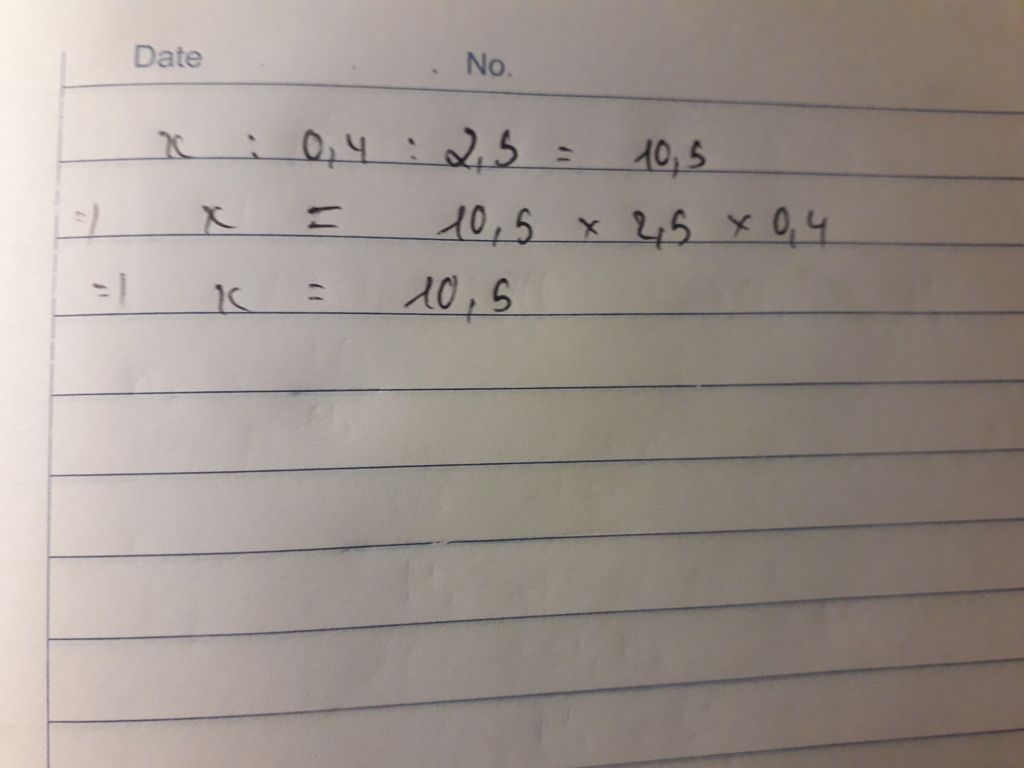 Date No.
x : 0,4 : 2,5 = 10,5
=) x = 10,5 × 2,5 × 0,4
=) x = 10,5